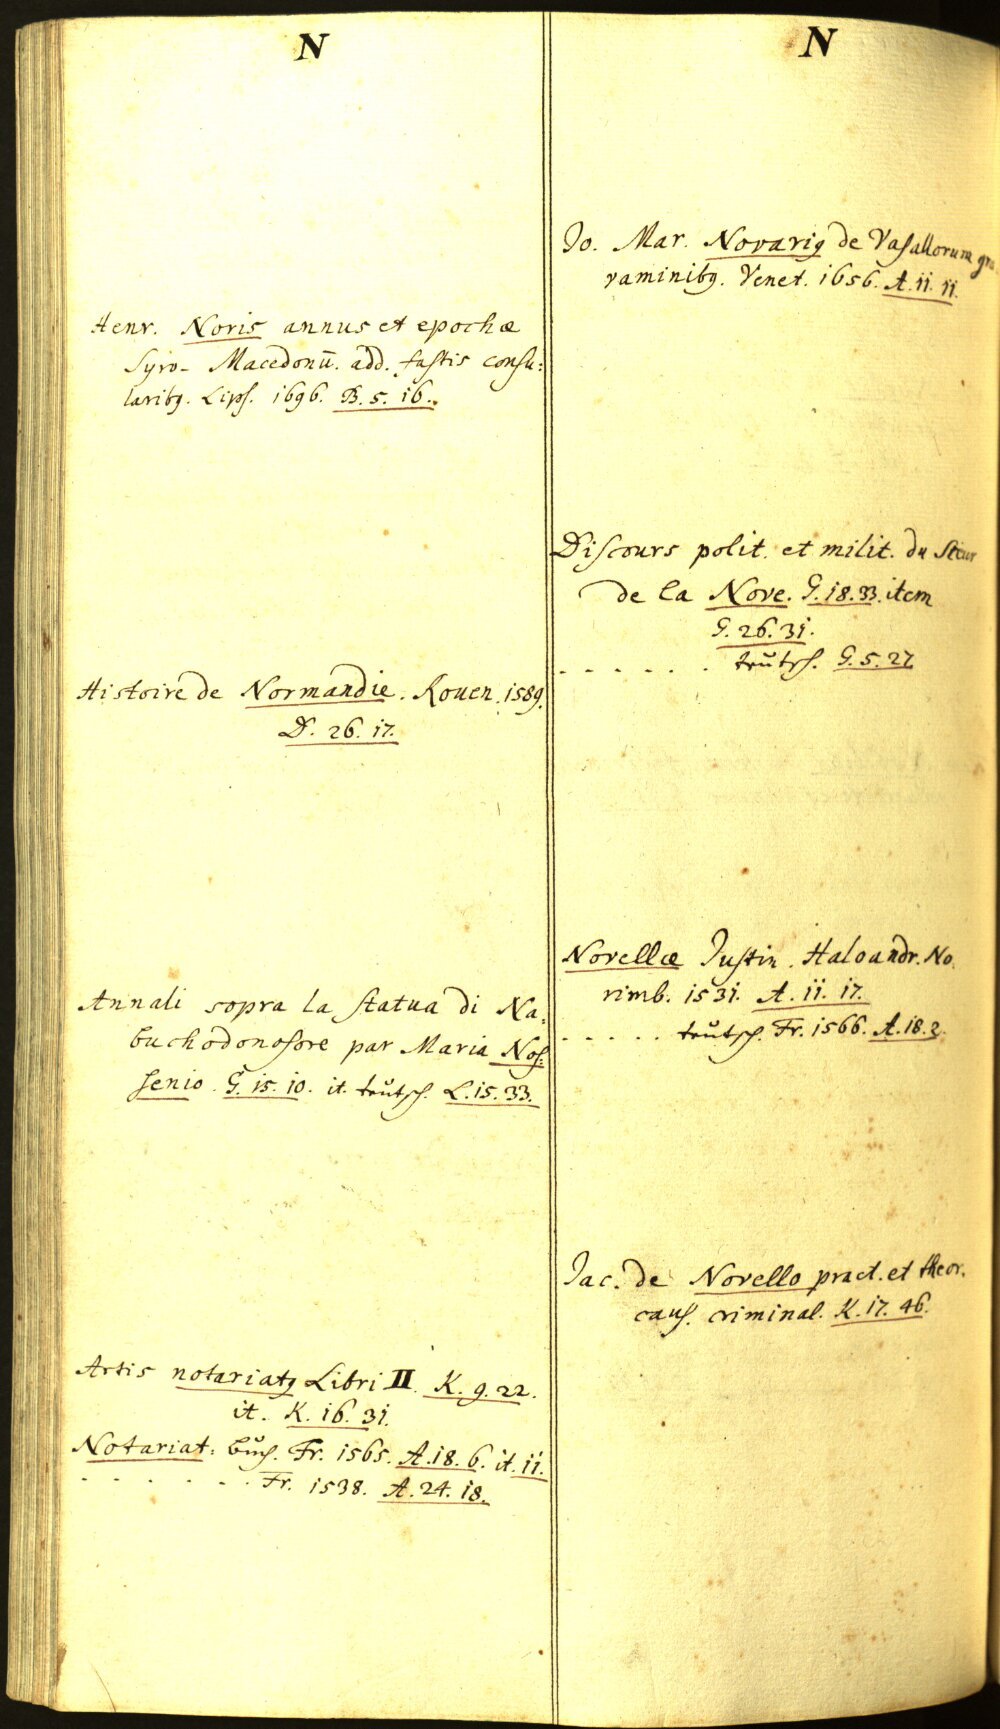 N
Henr. Noris annus et epochæ
Syro-Macedonū. add. fastis consu:
laribꝫ. Lips. 1696. B. 5. 16.
Histoire de Normandie. Rouen. 1589.
D. 26. 17.
Annali sopra la statua di Na:
buchodonosore par Maria Nos:
senio. G. 15. 10. it. teŭtsch. L. 15. 33.
Artis notariatꝰ Libri II. K. 9. 22.
it. K. 16. 31.
Notariat: bŭch. Fr. 1565. A. 18. 6. it. 11.
- - - - - - Fr. 1538. A. 24. 18.
N
Jo. Mar. Novariꝰ de Vasallorum gra
vaminibꝫ. Venet. 1656. A. 11. 11.
Discours polit. et milit. du Sieur
de la Nove. G. 18. 33. item
G. 26. 31.
- - - - - - teŭtsch. G. 5. 27
Novellæ Justin. Haloandr. No.
rimb. 1531. A. 11. 17.
- - - - - teŭtsch. Fr. 1566. A. 18. 2.
Jac. de Novello pract. et theor.
caus. criminal. K. 17. 46.